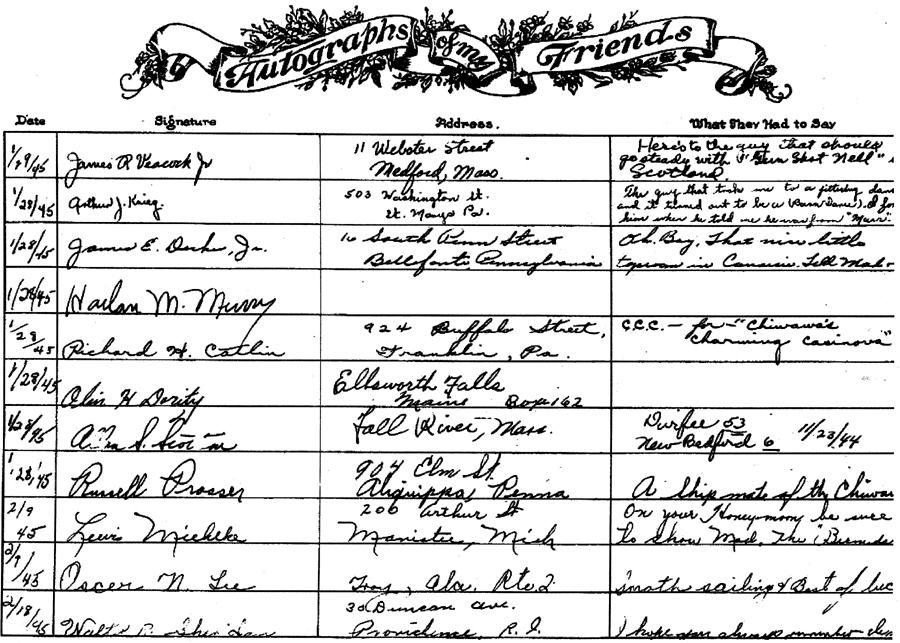 Autographs of my Friends
Date Signature Address. What They Had to Say
1/29/45 James R Peacock Jr 11 Webster Street
Medford, Mass.
Here's to the guy that should
go steady with "Gun Shot Nell"
Scotland.
1/28/45 Arthur J. Krieg. 503 Washington St.
St. Marys Pa.
The guy that took me to a jitterbug
and it turned out to be a (Barn Dance). I
him when he told me he was from "Mass".
1/28/45 James E. Jr. 16 South Penn Street
Bellefonte, Pennsylvania
Oh, Boy, That nice little
in Canarsie. Tell
1/28/45 Harlan M. Murry
1/28/45 Richard H. Catlin 924 Buffalo Street,
Franklin, Pa.
C.C.C. — for — "Chiwawa's
charming casinova"
1/28/45 Olin H Dority Ellsworth Falls
Maine Box 162
1/28/45 S. Fall River, Mass.
Durfee 53
New Bedford 6 11/23/44
1/28/45 Russell Prosser 904 Elm St.
Aliquippa, Penna
A Ship mate of the
2/9/45 Lewis Mielke 206 Arthur St
Manistee, Mich
On your Honeymoon, be sure
to show The (Bermuda
2/9/45 Oscar N. Lee Troy, Ala. Rte. 2
Smooth sailing & Best of
2/18/45 Walter Sheridan 30 Duncan Ave.
Providence, R.I.
I hope you always remember